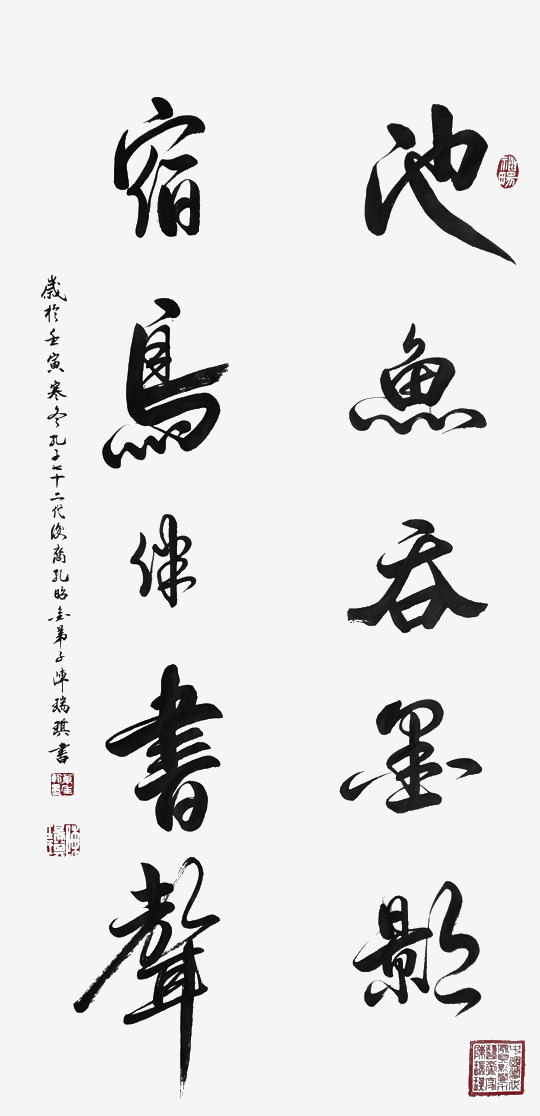 池魚吞墨影
宿鳥伴書聲
歲於壬寅寒冬孔子七十二代後裔孔昭金弟子陳瑞琪書